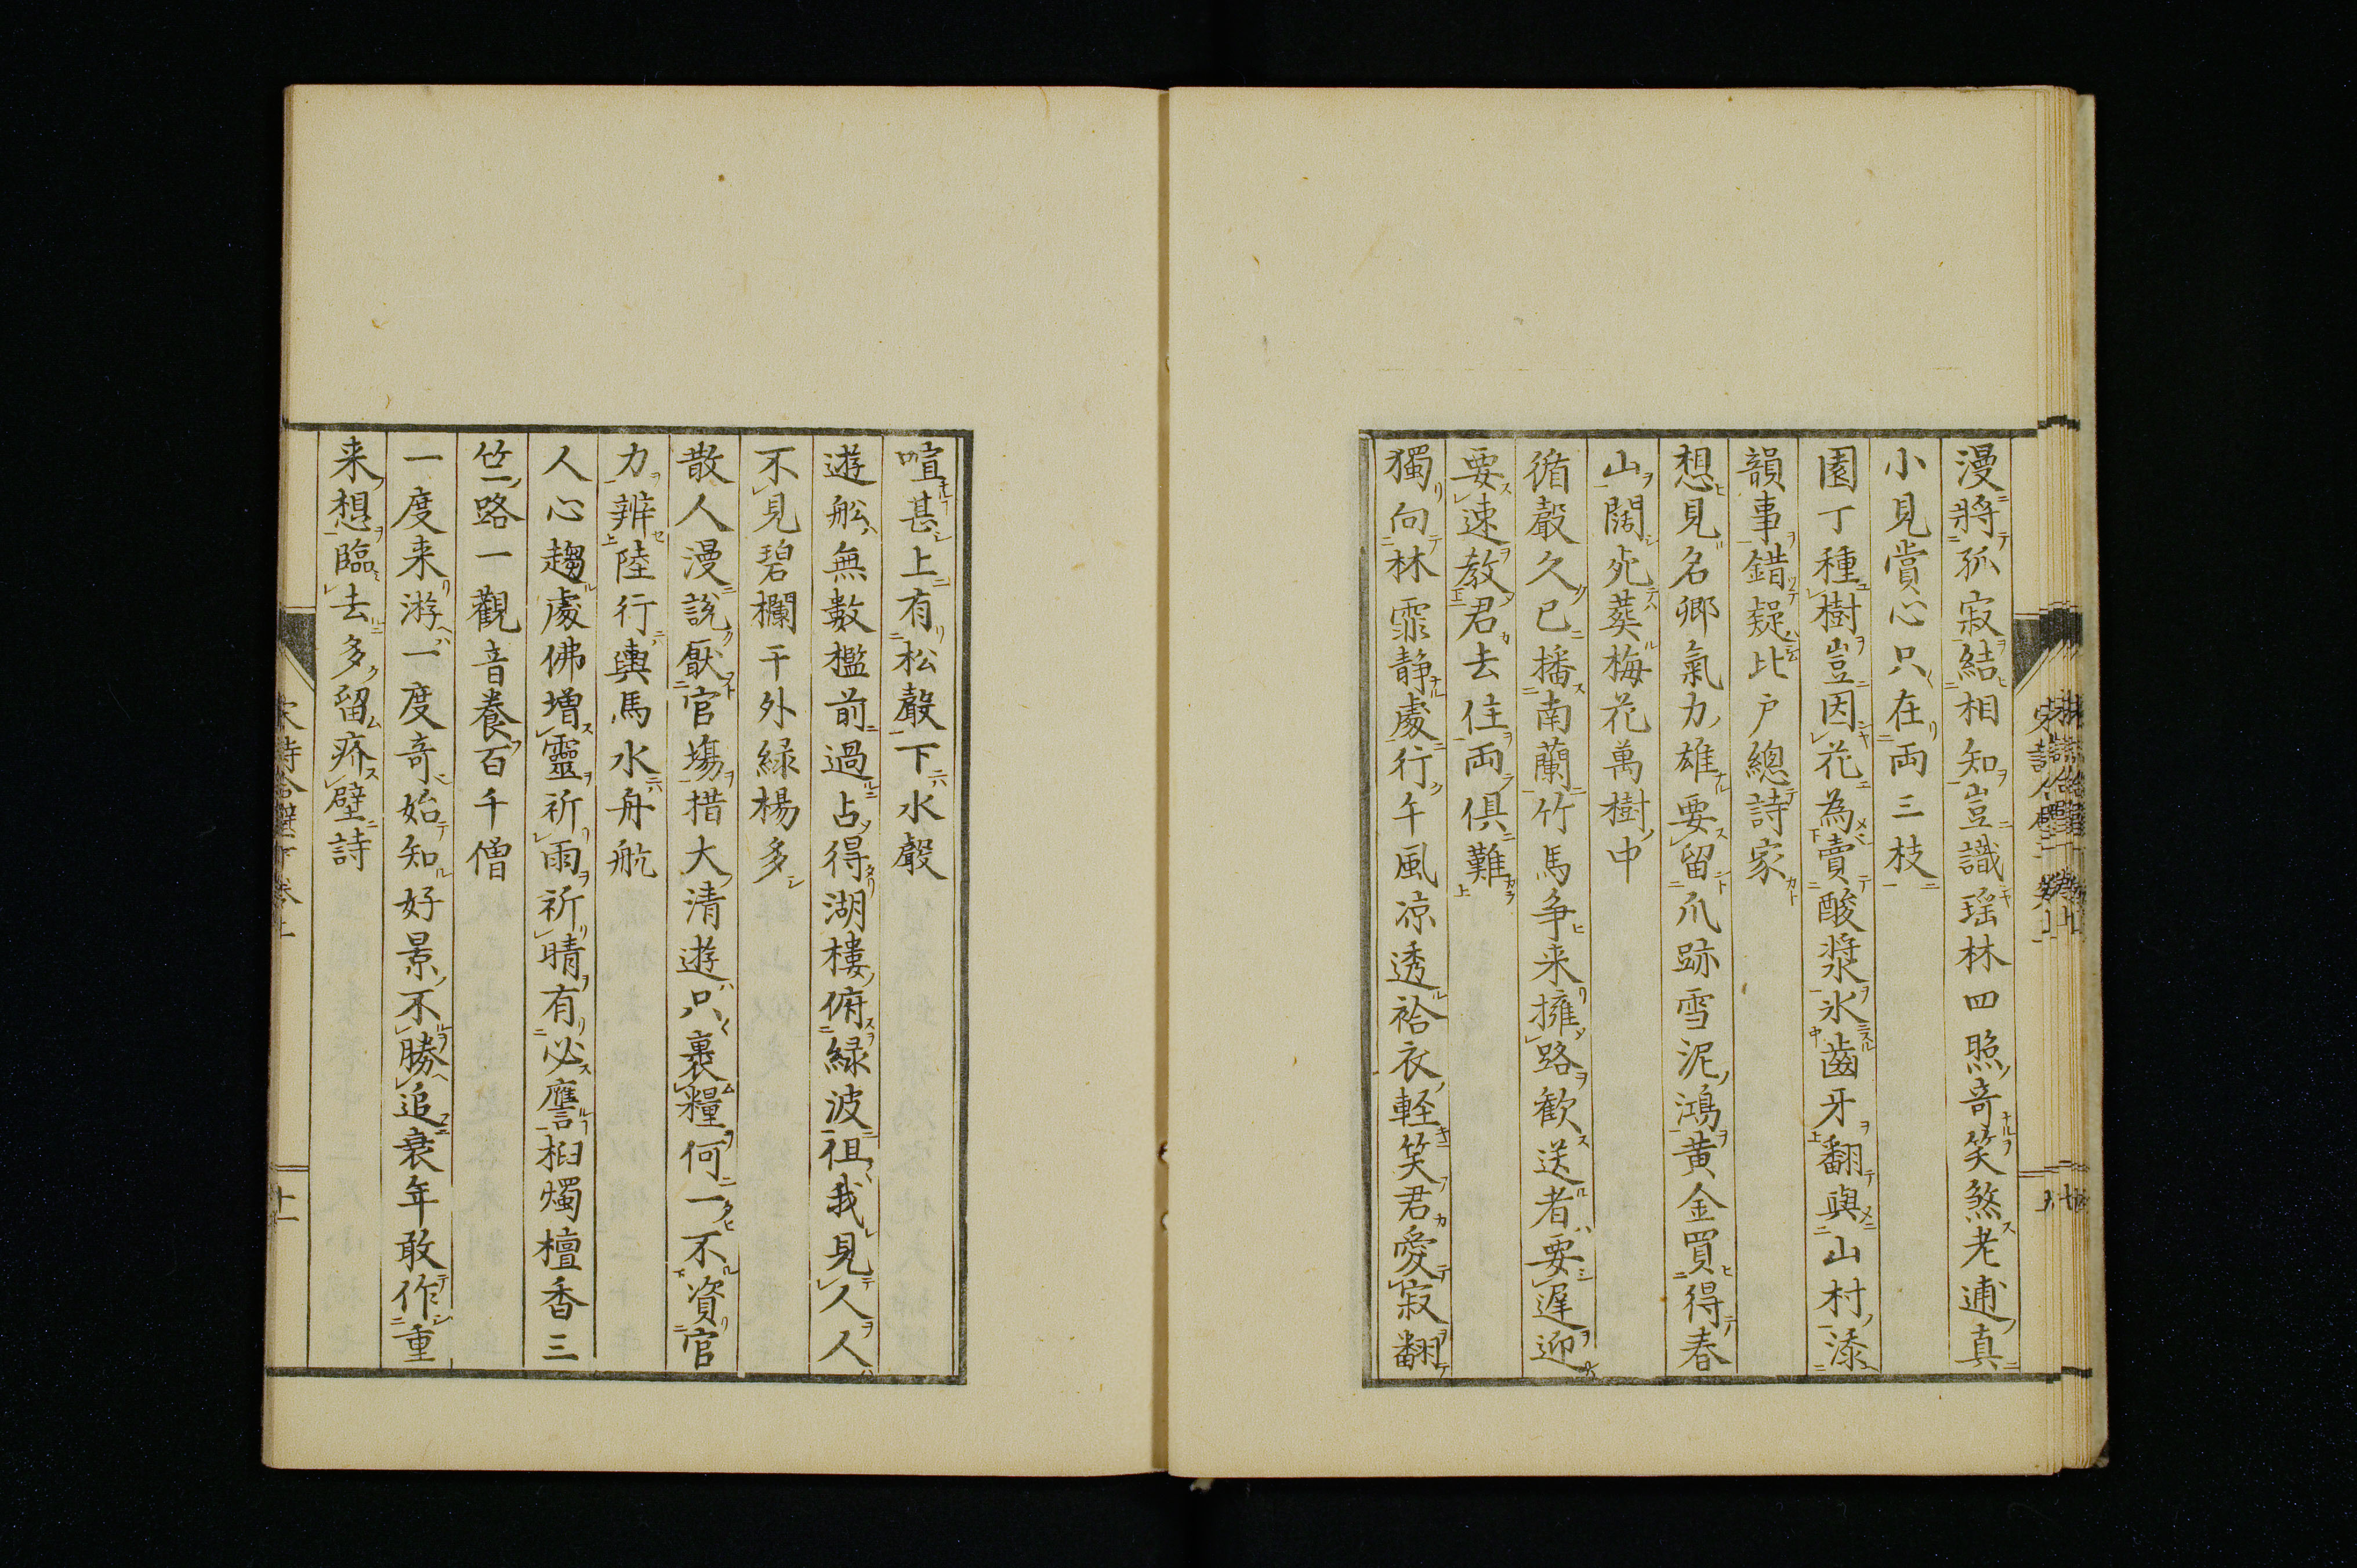 漫將孤寂結相知豈識瑶林四照奇笑煞老逋真
小見賞心只在両三枝
園丁種樹豈因花為賣酸漿氷齒牙翻與山村添
韻事錯疑比戸總詩家
想見名卿氣力雄要留爪跡雪泥鴻黄金買得春
山闊死葬梅花萬樹中
循聲久已播南蘭竹馬争来擁路歓送者要遲迎
要速教君去住両俱難
獨向林霏静處行午風凉透袷衣軽笑君愛寂翻
喧甚上有松聲下水聲
遊舩無數檻前過占得湖樓俯緑波徂我見人人
不見碧欄干外緑楊多
散人漫説厭官場措大清遊只裹糧何一不資官
力辨陸行輿馬水舟航
人心趨處佛増靈祈雨祈晴有必譍桕燭檀香三
竺路一觀音養百千僧
一度来游一度奇始知好景不勝追衰年敢作重
来想臨去多留疥壁詩
十一